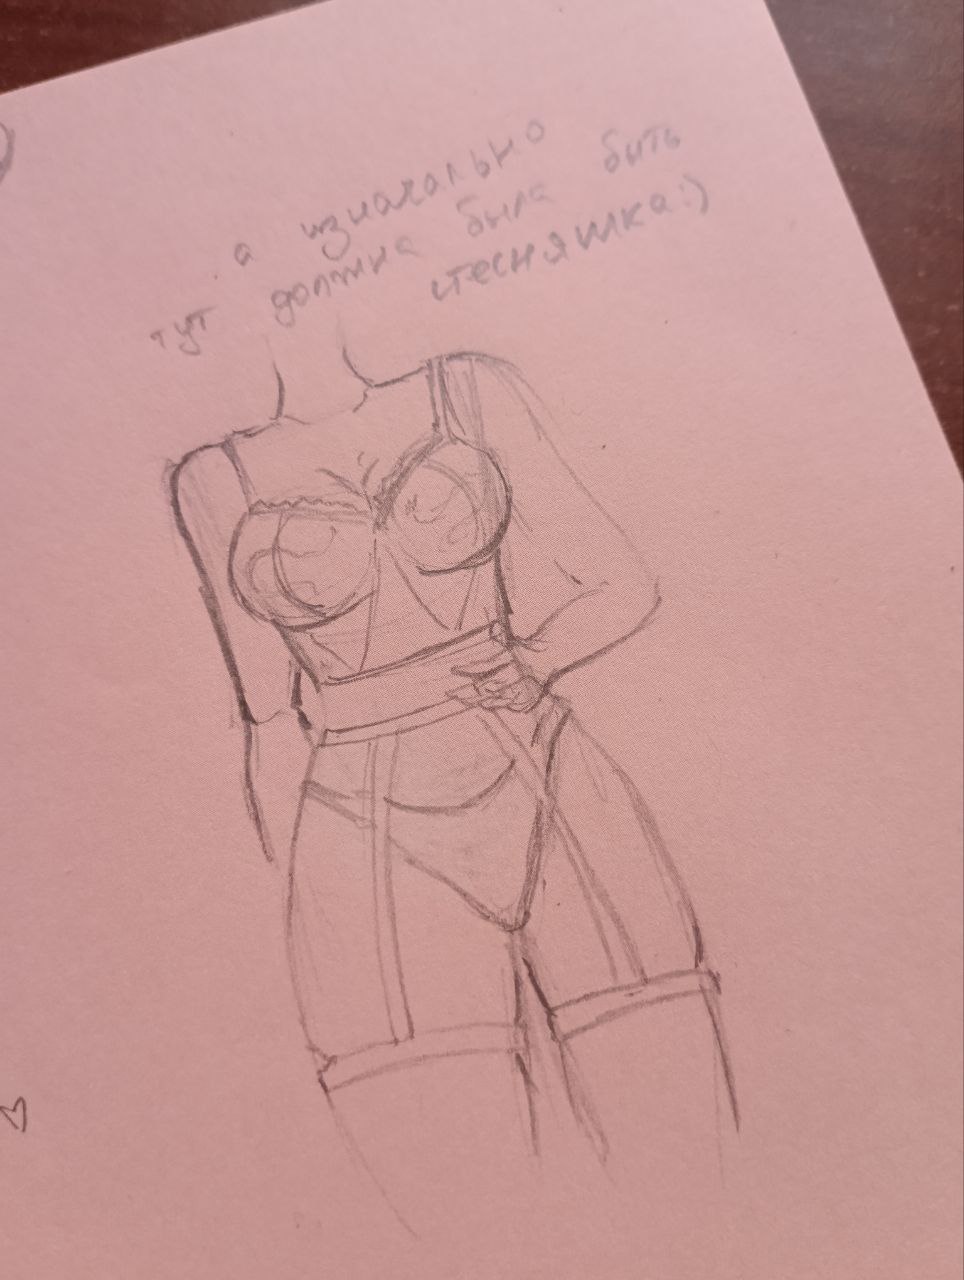 а изначально
тут должна была быть
стесняшка:)